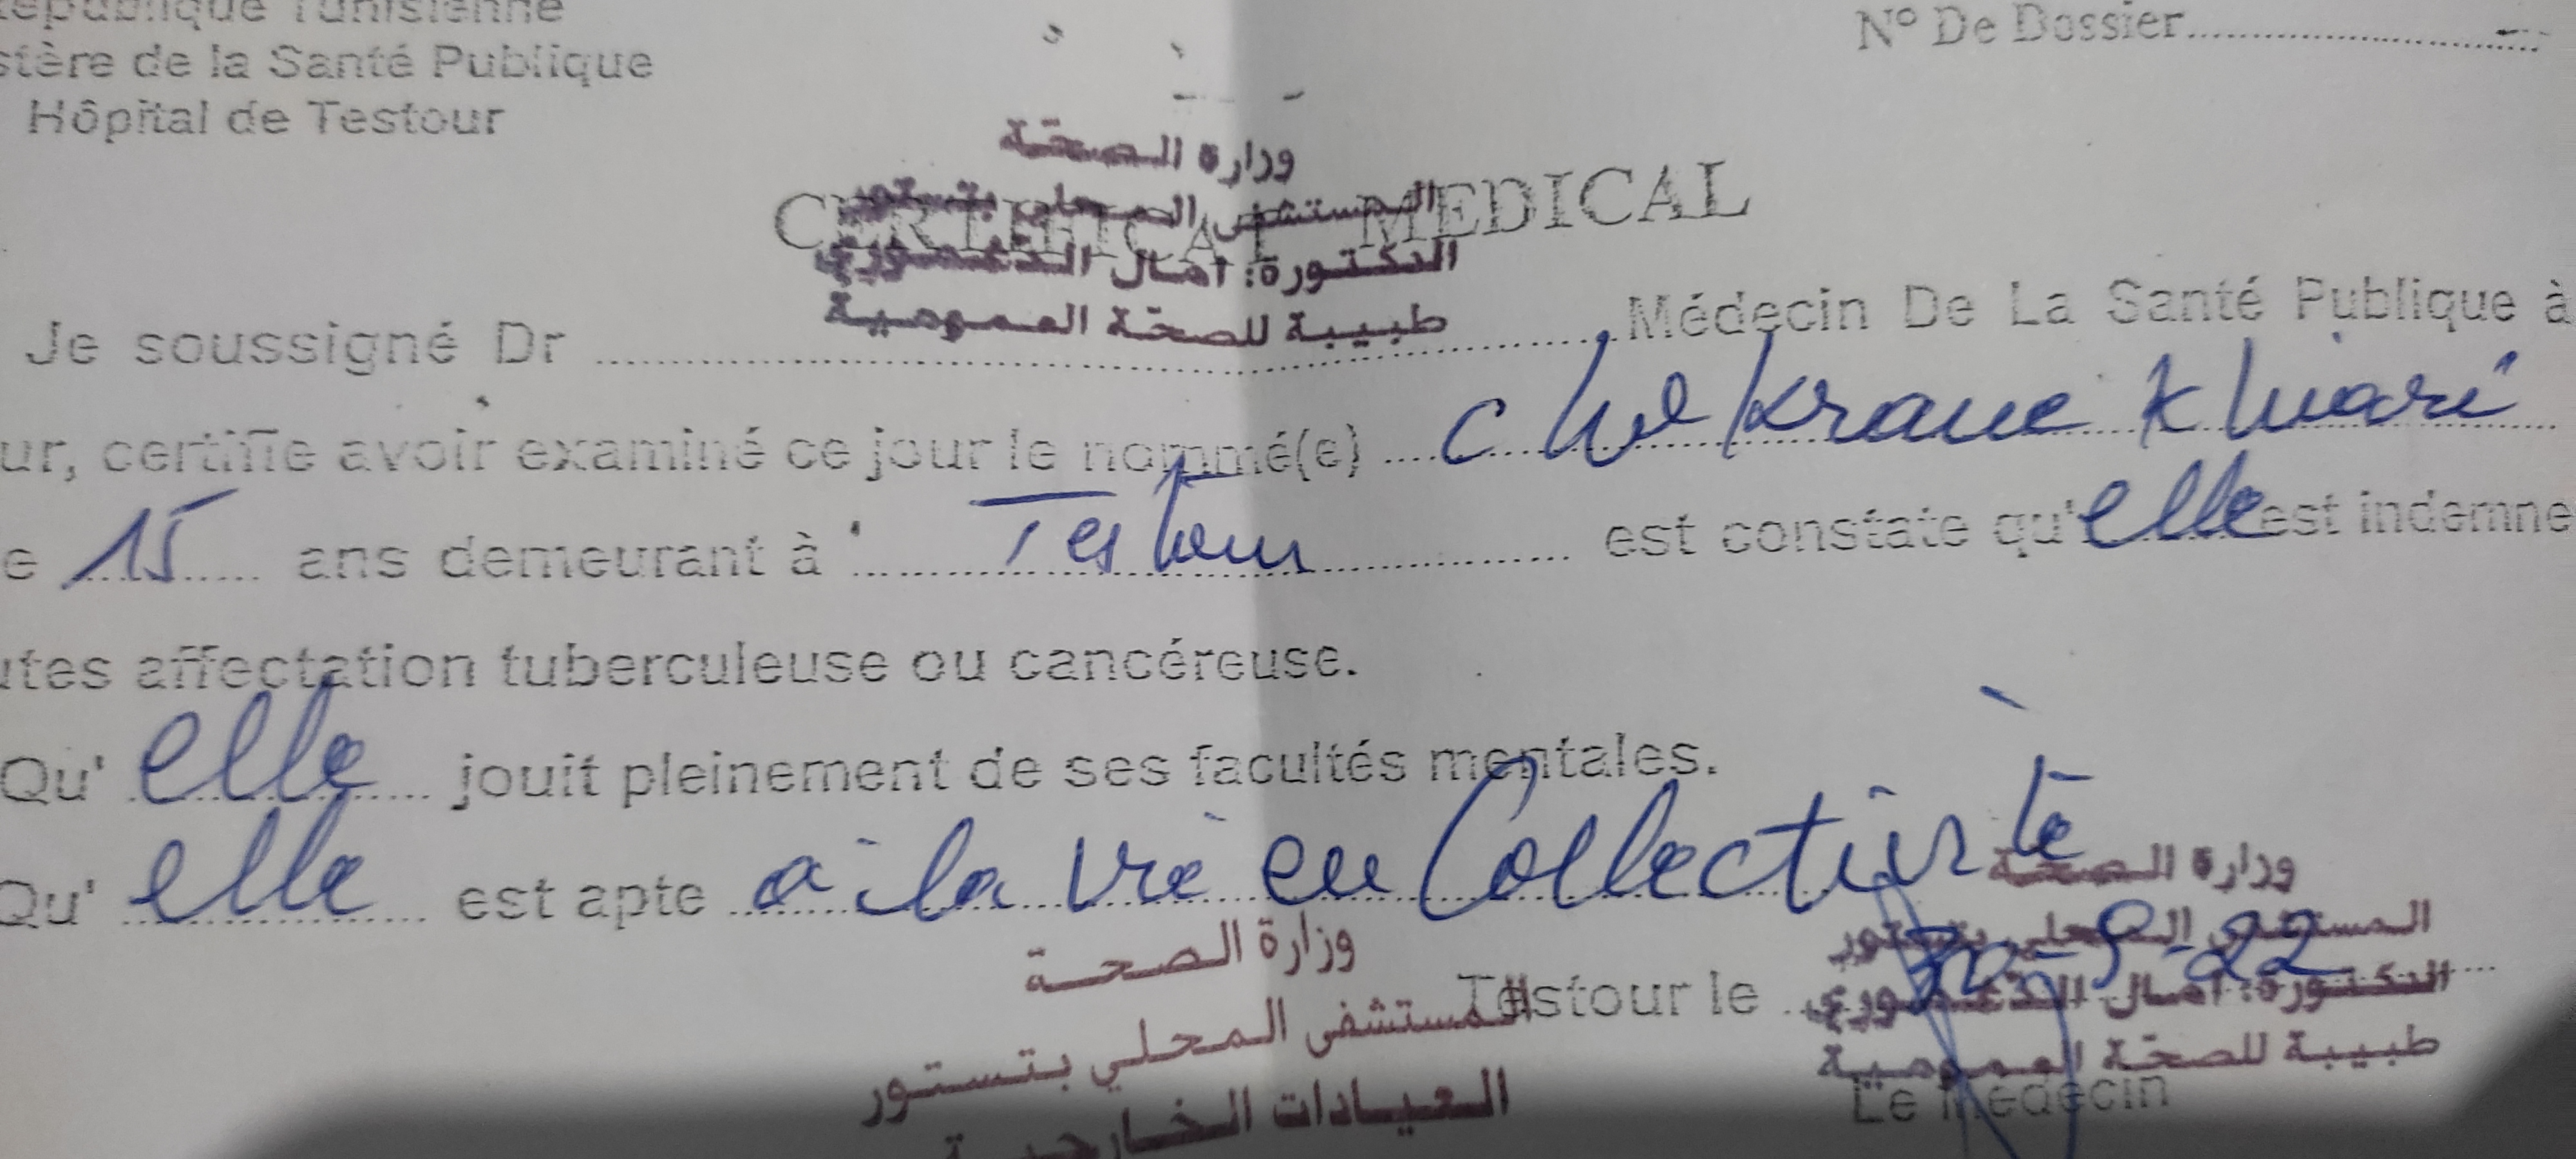 République Tunisienne
stère de la Santé Publique
Hôpital de Testour
N° De Dossier
CERTIFICAT MEDICAL
وزارة الصحّة
المستشفى المحلي بتستور
الدكتورة: امال
طبيبة للصحّة العمومية
Je soussigné Dr Médecin De La Santé Publique à
ur, certifie avoir examiné ce jour le nommé(e) Chekrane Khiari
e 15 ans demeurant à Testour est constate qu'elle est indemne
utes affectation tuberculeuse ou cancéreuse.
Qu' elle jouit pleinement de ses facultés mentales.
Qu' elle est apte à la vie en Collectivité
Testour le 30-9-22
وزارة الصحة
المستشفى المحلي بتستور
العيادات الخارجية
وزارة الصحّة
المستشفى المحلي بتستور
الدكتورة: امال
طبيبة للصحّة العمومية
Le Médecin